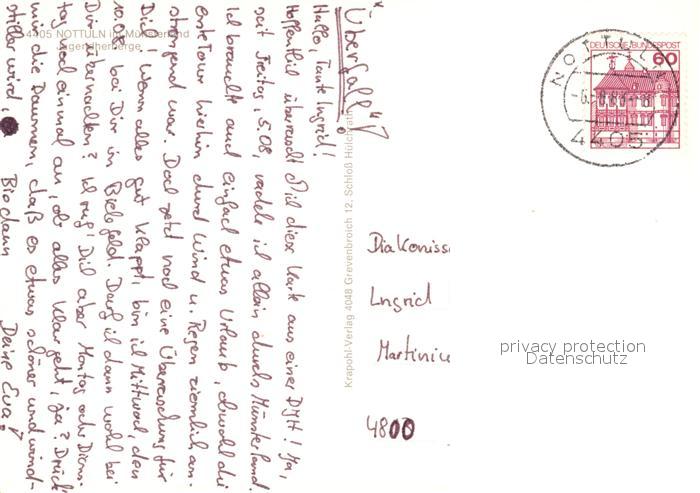 4405 NOTTULN im Münsterland
Jugendherberge
"Überfall"!
Hallo, Tante Ingrid!
Hoffentlich überrascht Dich diese Karte aus einer DJH! Ja,
seit Freitag, 5.08, radele ich allein durchs Münsterland.
Ich brauchte auch einfach etwas Urlaub, obwohl die
erste Tour hierhin durch Wind u. Regen ziemlich an-
strengend war. Doch jetzt noch eine Überraschung für
Dich! Wenn alles gut klappt, bin ich Mittwoch, den
10.08 bei Dir in Bielefeld. Darf ich dann wohl bei
Dir übernachten? Ich ruf' Dich aber Montag oder Diens-
tag noch einmal an, ob alles klar geht, ja? Drück
mir die Daumen, daß es etwas schöner und wind-
stiller wird. Bis dann Deine Eva!
Krapohl-Verlag 4048 Grevenbroich 12, Schloß Hülchrath
DEUTSCHE BUNDESPOST
60
NOTTULN
4405
Diakoniss
Ingrid
Martini
4800
privacy protection
Datenschutz